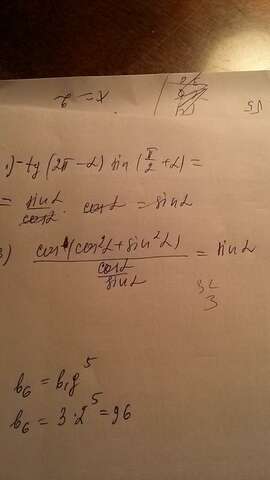 √5
x = 2
.) -tg (2π - α) sin (π/2 + α) =
= sinα/cosα · cosα = sinα
) cosα (cos²α + sin²α) / (cosα/sinα) = sinα
32
3
b₆ = b₁g⁵
b₆ = 3·2⁵ = 96